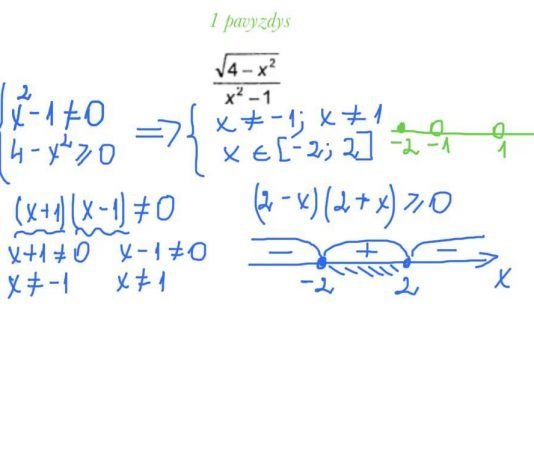 1 pavyzdys
√(4 − x²)
x² − 1
x² − 1 ≠ 0
4 − x² ⩾ 0
⇒ { x ≠ −1; x ≠ 1
x ∈ [−2; 2]
−2 −1 1
(x+1)(x−1) ≠ 0
x+1 ≠ 0 x−1 ≠ 0
x ≠ −1 x ≠ 1
(2 − x)(2 + x) ⩾ 0
− + −
−2 2 x